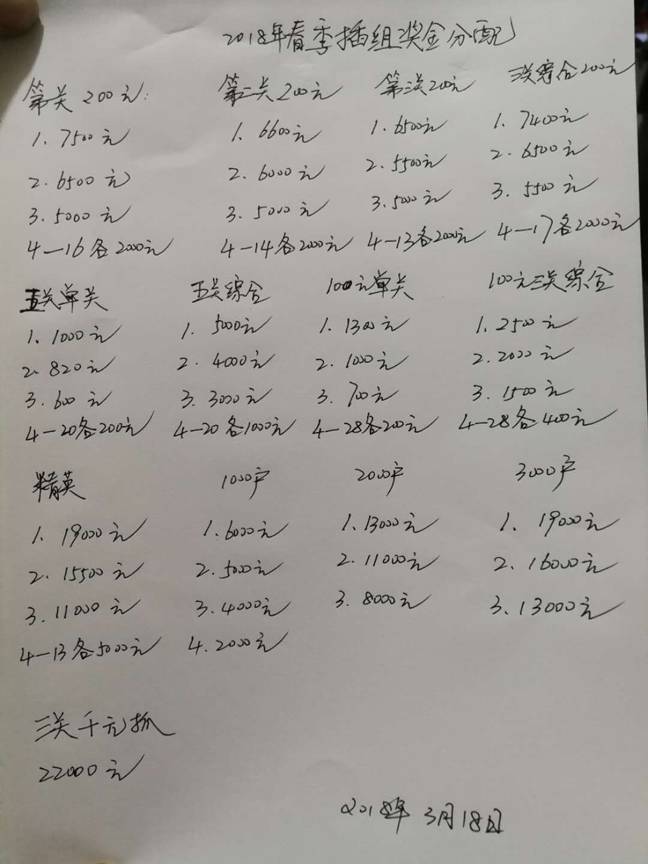 2018年春季插组奖金分配
第一关 200元: 第二关 200元 第三关 200元 三关综合200元
1. 7500元 1. 6600元 1. 6500元 1. 7400元
2. 6500元 2. 6000元 2. 5500元 2. 6500元
3. 5000元 3. 5000元 3. 5000元 3. 5500元
4—16各2000元 4—14各2000元 4—13各2000元 4—17各2000元
五关单关 五关综合 100元单关 100元三关综合
1. 1000元 1. 5000元 1. 1300元 1. 2500元
2. 820元 2. 4000元 2. 1000元 2. 2000元
3. 600元 3. 3000元 3. 700元 3. 1500元
4—20各200元 4—20各1000元 4—28各200元 4—28各400元
精英 1000户 2000户 3000户
1. 19000元 1. 6000元 1. 13000元 1. 19000元
2. 15500元 2. 5000元 2. 11000元 2. 16000元
3. 11000元 3. 4000元 3. 8000元 3. 13000元
4—13各5000元 4. 2000元
三关千元抓
22000元
2018年 3月18日